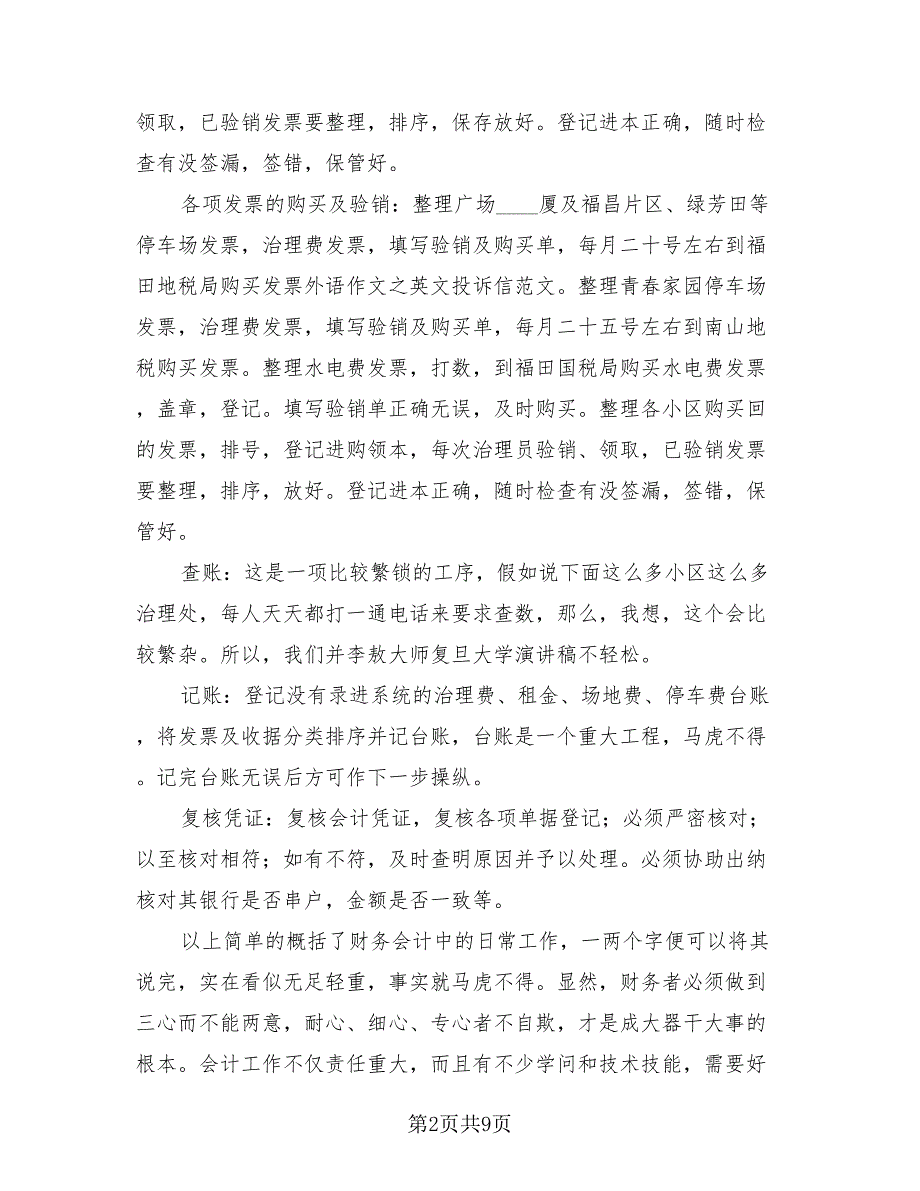 领取，已验销发票要整理，排序，保存放好。登记进本正确，随时检
查有没签漏，签错，保管好。
各项发票的购买及验销：整理广场____厦及福昌片区、绿芳田等
停车场发票，治理费发票，填写验销及购买单，每月二十号左右到福
田地税局购买发票外语作文之英文投诉信范文。整理青春家园停车场
发票，治理费发票，填写验销及购买单，每月二十五号左右到南山地
税购买发票。整理水电费发票，打数，到福田国税局购买水电费发票
，盖章，登记。填写验销单正确无误，及时购买。整理各小区购买回
的发票，排号，登记进购领本，每次治理员验销、领取，已验销发票
要整理，排序，放好。登记进本正确，随时检查有没签漏，签错，保
管好。
查账：这是一项比较繁锁的工序，假如说下面这么多小区这么多
治理处，每人天天都打一通电话来要求查数，那么，我想，这个会比
较繁杂。所以，我们并李敖大师复旦大学演讲稿不轻松。
记账：登记没有录进系统的治理费、租金、场地费、停车费台账
，将发票及收据分类排序并记台账，台账是一个重大工程，马虎不得
。记完台账无误后方可作下一步操纵。
复核凭证：复核会计凭证，复核各项单据登记；必须严密核对；
以至核对相符；如有不符，及时查明原因并予以处理。必须协助出纳
核对其银行是否串户，金额是否一致等。
以上简单的概括了财务会计中的日常工作，一两个字便可以将其
说完，实在看似无足轻重，事实就马虎不得。显然，财务者必须做到
三心而不能两意，耐心、细心、专心者不自欺，才是成大器干大事的
根本。会计工作不仅责任重大，而且有不少学问和技术技能，需要好
第2页共9页